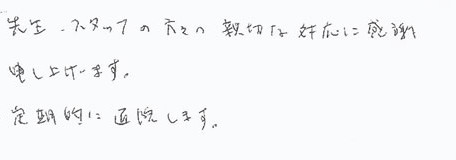 先生、スタッフの方々の親切な対応に感謝
申し上げます。
定期的に通院します。